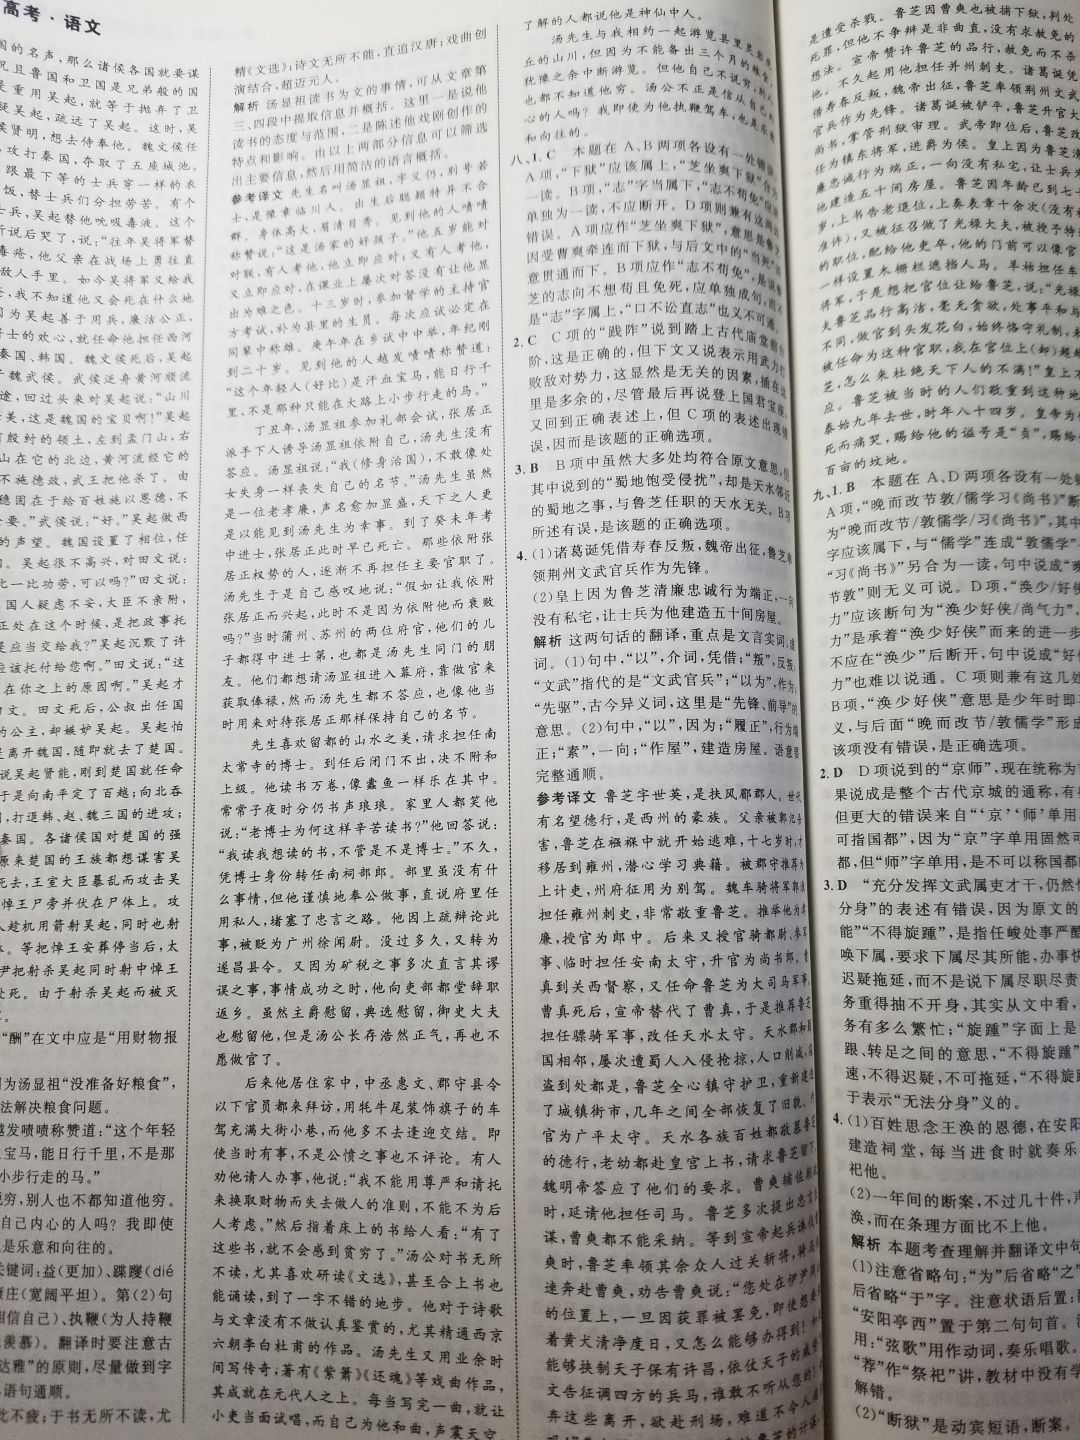 高考·语文
国的名声,那么诸侯各国就要谋
况且鲁国和卫国是兄弟般的国
是重用吴起,就等于抛弃了卫
吴起,疏远了吴起。这时,吴
侯贤明,想去侍奉他。魏文侯任
攻打秦国,夺取了五座城池。
跟最下等的士兵穿一样的衣
饭,替士兵们分担劳苦。有个
士兵,吴起替他吮吸毒液。这个
听说后哭了,说:“往年吴将军替
毒疮,他父亲在战场上勇往直
敌人手里。如今吴将军又给我
我不知道他又会死在什么地
因为吴起善于用兵,廉洁公正,
将士的欢心,就任命他担任西河
秦国、韩国。魏文侯死后,吴起
子魏武侯。武侯泛舟黄河顺流
途,回过头来对吴起说:“山川
美,这是魏国的宝贝啊!”吴起
殷纣的领土,左到孟门山,右
山在它的北边,黄河流经它的
不施德政,武王把他杀了。由
稳固在于给百姓施以恩德,不
要。”武侯说:“好。”吴起做西
的声望。魏国设置了相位,任
吴起很不高兴,对田文说:
比一比功劳,可以吗?”田文说:
国人疑虑不安,大臣不亲附,
正处在这个时候,是把政事托
是应当交给我?”吴起沉默了许
应该托付给您啊。”田文说:“这
在你之上的原因啊。”吴起才
文。田文死后,公叔出任国
的公主,却嫉妒吴起。吴起怕
是离开魏国,随即就去了楚国。
说吴起贤能,刚到楚国就任命
于是向南平定了百越;向北吞
打退韩、赵、魏三国的进攻;
秦国。各诸侯国对楚国的强
原来楚国的王族都想谋害吴
死去,王室大臣暴乱而攻击吴
悼王尸旁并伏在尸体上。攻
趁机用箭射吴起,同时也射
等把悼王安葬停当后,太
尹把射杀吴起同时射中悼王
处死。由于射杀吴起而被灭
“酬”在文中应是“用财物报
因为汤显祖“没准备好粮食”,
法解决粮食问题。
越发啧啧称赞道:“这个年轻
宝马,能日行千里,不是那
小步行走的马。”
说穷,别人也不都知道他穷。
自己内心的人吗?我即使
是乐意和向往的。
关键词:益(更加)、蹀躞(dié
康庄(宽阔平坦)。第(2)句
相信自己)、执鞭(为人持鞭
羡慕)。翻译时要注意古
达雅”的原则,尽量做到字
语句通顺。
此不疲;于书无所不读,尤
精《文选》;诗文无所不能,直追汉唐;戏曲创
演结合,超迈元人。
解析 汤显祖读书为文的事情,可从文章第
三、四段中提取信息并概括。这里一是说他
读书的态度与范围,二是陈述他戏剧创作的
特点和影响。由以上两部分信息可以筛选
出主要信息,然后用简洁的语言概括。
参考译文 先生名叫汤显祖,字义仍,别号若
士,是豫章临川人。出生后聪颖特异不合
群。身体高大,眉清目秀。见到他的人啧啧
称赞说:“这是汤家的好孩子。”他五岁能对
对联,有人考他,他立即应对;又有人考他,
又立即应对,在课业上屡次对答没有让他显
出为难之色。十三岁时,参加督学的主持官
方考试,补为县里的生员。每次应试必定在
同辈中称雄。庚午年在乡试中中举,年纪刚
到二十岁。见到他的人越发啧啧称赞道:
“这个年轻人(好比)是汗血宝马,能日行千
里,不是那种只能在大路上小步行走的马。”
丁丑年,汤显祖参加礼部会试,张居正
派手下人诱导汤显祖依附自己,汤先生没有
答应。汤显祖说:“我(修身治国),不敢像处
女失身一样丧失自己的名节。”汤先生虽然
是一位老孝廉,声名愈加显盛,天下之人更
是以能见到汤先生为幸事。到了癸未年考
中进士,张居正此时早已死亡。那些依附张
居正权势的人,逐渐不再担任主要官职了。
汤先生于是自己感叹地说:“假如让我依附
张居正而兴起,此时不是因为依附他而衰败
吗?”当时蒲州、苏州的两位府官,他们的儿
子都得中进士第,也都是汤先生同门的朋
友。他们都想请汤显祖进入幕府,靠做官来
获取俸禄,然而汤先生都不答应,也像他当
时用来对待张居正那样保持自己的名节。
先生喜欢留都的山水之美,请求担任南
太常寺的博士。到任后闭门不出,决不附和
上级。他读书万卷,像蠹鱼一样乐在其中。
常常子夜时分仍书声琅琅。家里人都笑他
说:“老博士为何这样辛苦读书?”他回答说:
“我读我想读的书,不管是不是博士。”不久,
凭博士身份转任南祠部郎。部里虽没有什
么事情,但他谨慎地奉公做事,直说府里任
用私人,堵塞了忠言之路。他因上疏辩论此
事,被贬为广州徐闻尉。没过多久,又转为
遂昌县令。又因为矿税之事多次直言其谬
误之事,事情成功之时,他向吏部都堂辞职
返乡。虽然主爵慰留,典选慰留,御史大夫
也慰留他,但是汤公长存浩然正气,再也不
愿做官了。
后来他居住家中,中丞惠文、郡守县令
以下官员都来拜访,用牦牛尾装饰旗子的车
驾充满大街小巷,而他多不去逢迎交结。即
使当时有事,不是公愤之事也不评论。有人
劝他请人办事,他说:“我不能用尊严和请托
来换取财物而失去做人的准则,不能不为后
人考虑。”然后指着床上的书给人看:“有了
这些书,就不会感到贫穷了。”汤公对书无所
不读,尤其喜欢研读《文选》,甚至合上书也
能诵读,到了一字不错的地步。他对于诗歌
与文章没有不做认真鉴赏的,尤其精通西京
六朝李白杜甫的作品。汤先生又用业余时
间写传奇;著有《紫箫》《还魂》等戏曲作品,
其成就在元代人之上。每当写完一曲,就让
小吏当面试唱,而自己为他和曲,声震天空
了解的人都说他是神仙中人。
汤先生与我相约一起游览县里灵
丘的山川,但因为不能备出三个月的粮食,
犹豫之余中断游览。但他自己不说穷,别人
也都不知道他穷。汤公不正是信从自己内
心的人吗?我即使为他执鞭驾车,也是乐意
和向往的。
八、1. C 本题在A、B两项各设有一处错
A项,“下狱”应该属上,“芝坐爽下狱”合为
一读。B项,“志”字当属下,“志不苟免”
单独为一读,不应断开。D项则兼有这两
错误。A项应作“芝坐爽下狱”,意思是鲁
因受曹爽牵连而下狱,与后文中的“当死”
意贯通而下。B项应作“志不苟免”,是说
芝的志向不想苟且免死,应单独成句,而
是“志”字属上,“口不讼直志”也义不可通。
2. C C项的“践阼”说到踏上古代庙堂前台
阶,这是正确的,但下文又说表示用武力打
败敌对势力,这显然是无关的因素,插在这
里是多余的,尽管最后再说登上国君宝座,
又回到正确表述上,但C项的表述出现错
误,因而是该题的正确选项。
3. B B项中虽然大多处均符合原文意思,但
其中说到的“蜀地饱受侵扰”,却是天水邻近
的蜀地之事,与鲁芝任职的天水无关。B项
所述有误,是该题的正确选项。
4. (1)诸葛诞凭借寿春反叛,魏帝出征,鲁芝率
领荆州文武官兵作为先锋。
(2)皇上因为鲁芝清廉忠诚行为端正,一向
没有私宅,让士兵为他建造五十间房屋。
解析 这两句话的翻译,重点是文言实词、虚
词。(1)句中,“以”,介词,凭借;“叛”,反叛;
“文武”指代的是“文武官兵”;“以为”,作为;
“先驱”,古今异义词,这里是“先锋、前导”的
意思。(2)句中,“以”,因为;“履正”,行为端
正;“素”,一向;“作屋”,建造房屋。语意要
完整通顺。
参考译文 鲁芝字世英,是扶风郿郡人。世代
有名望德行,是西州的豪族。父亲被郭汜杀
害,鲁芝在襁褓中就开始逃难,十七岁时,才
移居到雍州,潜心学习典籍。被郡守推荐为
上计吏,州府征用为别驾。魏车骑将军郭淮
担任雍州刺史,非常敬重鲁芝。推举他为孝
廉,授官为郎中。后来又授官骑都尉、参军
事、临时担任安南太守,升官为尚书郎。曹
真到关西督察,又任命鲁芝为大司马军事,
曹真死后,宣帝替代了曹真,于是推荐鲁芝
担任骠骑军事,改任天水太守。天水郡和蜀
国相邻,屡次遭蜀人入侵抢掠,人口削减,寇
盗到处都是,鲁芝全心镇守护卫,重新建造
了城镇街市,几年之间全部恢复了旧貌。升
官为广平太守。天水各族百姓都敬慕鲁芝
的德行,老幼都赴皇宫上书,请求鲁芝留下,
魏明帝答应了他们的要求。曹爽辅佐朝政
时,延请他担任司马。鲁芝多次提出忠言良
谋,曹爽都不能采纳。等到宣帝起兵诛伐曹
爽时,鲁芝率领其余众人过关斩将,骑马
速奔赴曹爽,劝告曹爽说:“您处在伊尹周公
的位置上,一旦因获罪被罢免,即使想牵
着黄犬清净度日,又怎么能够办得到!如果
能够挟制天子保有许昌,依仗天子的威势
文告征调四方的兵马,谁敢不听从您的
弃这些离开,欲赴刑场,难道不令人痛
是遭受杀戮。鲁芝因曹爽也被捕下狱,判处
死罪,但他不争辩是非曲直,没有求赦免的
想法。宣帝赞许鲁芝的品行,赦免而不杀
他。不久起用他担任并州刺史。诸葛诞凭
借寿春反叛,魏帝出征,鲁芝率领荆州文武
官兵作为先锋。诸葛诞被铲平,鲁芝升官大
尚书,掌管刑狱审理。武帝即位后,鲁芝改
任为镇东将军,进爵为侯。皇上因为鲁芝清
廉忠诚行为端正,一向没有私宅,让士兵为
他建造五十间房屋。鲁芝因年龄已到七十
岁,上书告老退位,上奏表章十余次(没有
准许),又被征召做了光禄大夫,被授予特进
的职位,配给他吏卒,他的门前可以像官
一样设置木栅栏遮挡人马。羊祜担任车
将军,于是想把官位让给鲁芝,说:“光禄
夫鲁芝品行高洁,毫无贪欲,处事平和与
不同,做官到头发花白,始终恪守礼制,未
被任命为这种官职,我在官位上(却)超越
芝,怎么来杜绝天下人的不满!”皇上不
应。鲁芝被当时的人们敬重到这种地
泰始九年去世,时年八十四岁。皇帝为他
死而痛哭,赐给他的谥号是“贞”,赐给
百亩的坟地。
九、1. B 本题在A、D两项各设有一处错
A项,“晚而改节敦/儒学习《尚书》”断
为“晚而改节/敦儒学/习《尚书》”,其中
字应该属下,与“儒学”连成“敦儒学”
“习《尚书》”另合为一读,句中说成“晚
节敦”则无义可说。D项,“涣少/好侠
力”应该断句为“涣少好侠/尚气力”,
力”是承着“涣少好侠”而来的进一步
不应在“涣少”后断开,句中说成“好侠
力”也难以说通。C项则兼有这几处
B项,“涣少好侠”意思是少年时即
义,与后面“晚而改节/敦儒学”形成
该项没有错误,是正确选项。
2. D D项说到的“京师”,现在统称为
果说成是整个古代京城的通称,有
但更大的错误来自“‘京’‘师’单用
可指国都”,因为“京”字单用固然可
都,但“师”字单用,是不可以称国都
3. D “充分发挥文武属吏才干,仍然
分身”的表述有错误,因为原文的
能”“不得旋踵”,是指任峻处事严酷
唤下属,要求下属尽其所能,办事快
迟疑拖延,而不是说下属尽职尽责
务重得抽不开身,其实从文中看,
务有多么繁忙;“旋踵”字面上是
跟、转足之间的意思,“不得旋踵”
速,不得迟疑,不可拖延,“不得旋踵”
于表示“无法分身”义的。
4. (1)百姓思念王涣的恩德,在安阳
建造祠堂,每当进食时就奏乐
祀他。
(2)一年间的断案,不过几十件,
涣,而在条理方面比不上他。
解析 本题考查理解并翻译文中句
(1)注意省略句:“为”后省略“之”
后省略“于”字。注意状语后置:
“安阳亭西”置于第二句句首。
用:“弦歌”用作动词,奏乐唱歌。
“荐”作“祭祀”讲,教材中没有学
解错。
(2)“断狱”是动宾短语,断案。